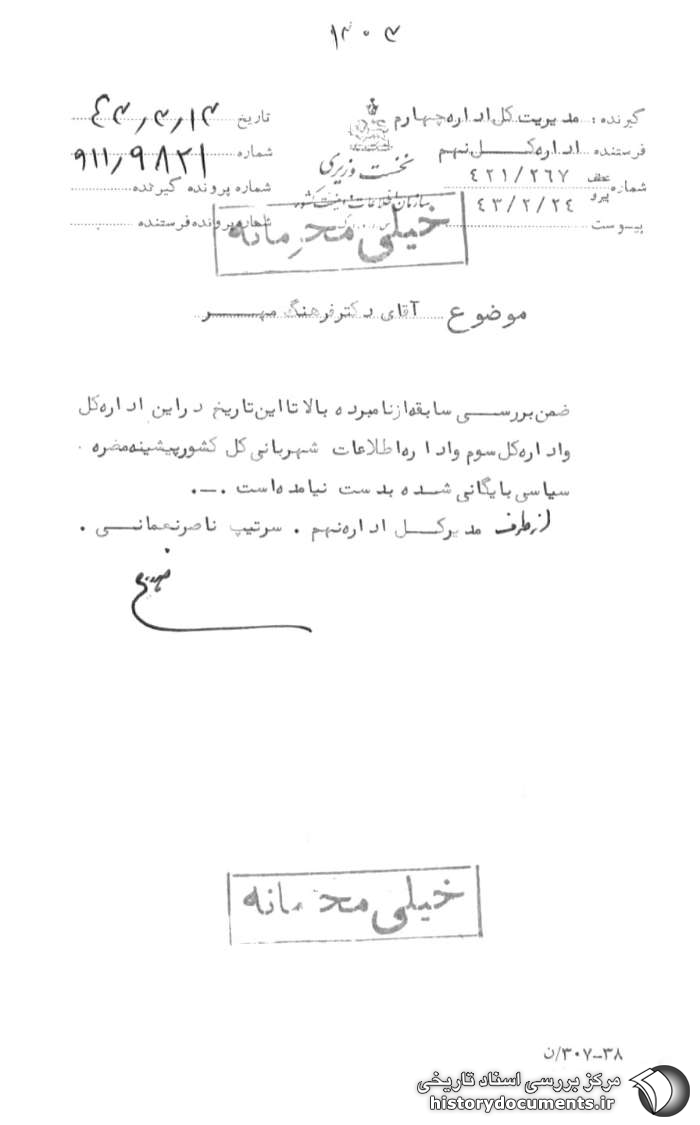 ۱۴۰۳
گیرنده : مدیریت کل اداره چهارم
فرستنده اداره کـــل نهم
شماره عطف ٤٢١/٢٦٧
پیرو ٤٣/٢/٢٤
پیـوست
نخست وزیری
سازمان اطلاعات و امنیت کشور
تاریخ
شماره ۹۱۱٫۹۸۲۱
شماره پرونده گیرنده
شماره پرونده فرستنده
خیلی محرمانه
موضوع آقای دکتر فرهنگ مهـــر
ضمن بررســـی سابقه از نامبرده بالا تا این تاریخ در این اداره کل
و اداره کل سوم و اداره اطلاعات شهربانی کل کشور پیشینه مضره
سیاسی بایگانی شـده بدست نیامده است .ـ.
از طرف مدیر کــل اداره نهم . سرتیپ ناصر نعمانــی .
خیلی محرمانه
۳۸-۳۰۷/ن
مرکز بررسی اسناد تاریخی
historydocuments.ir